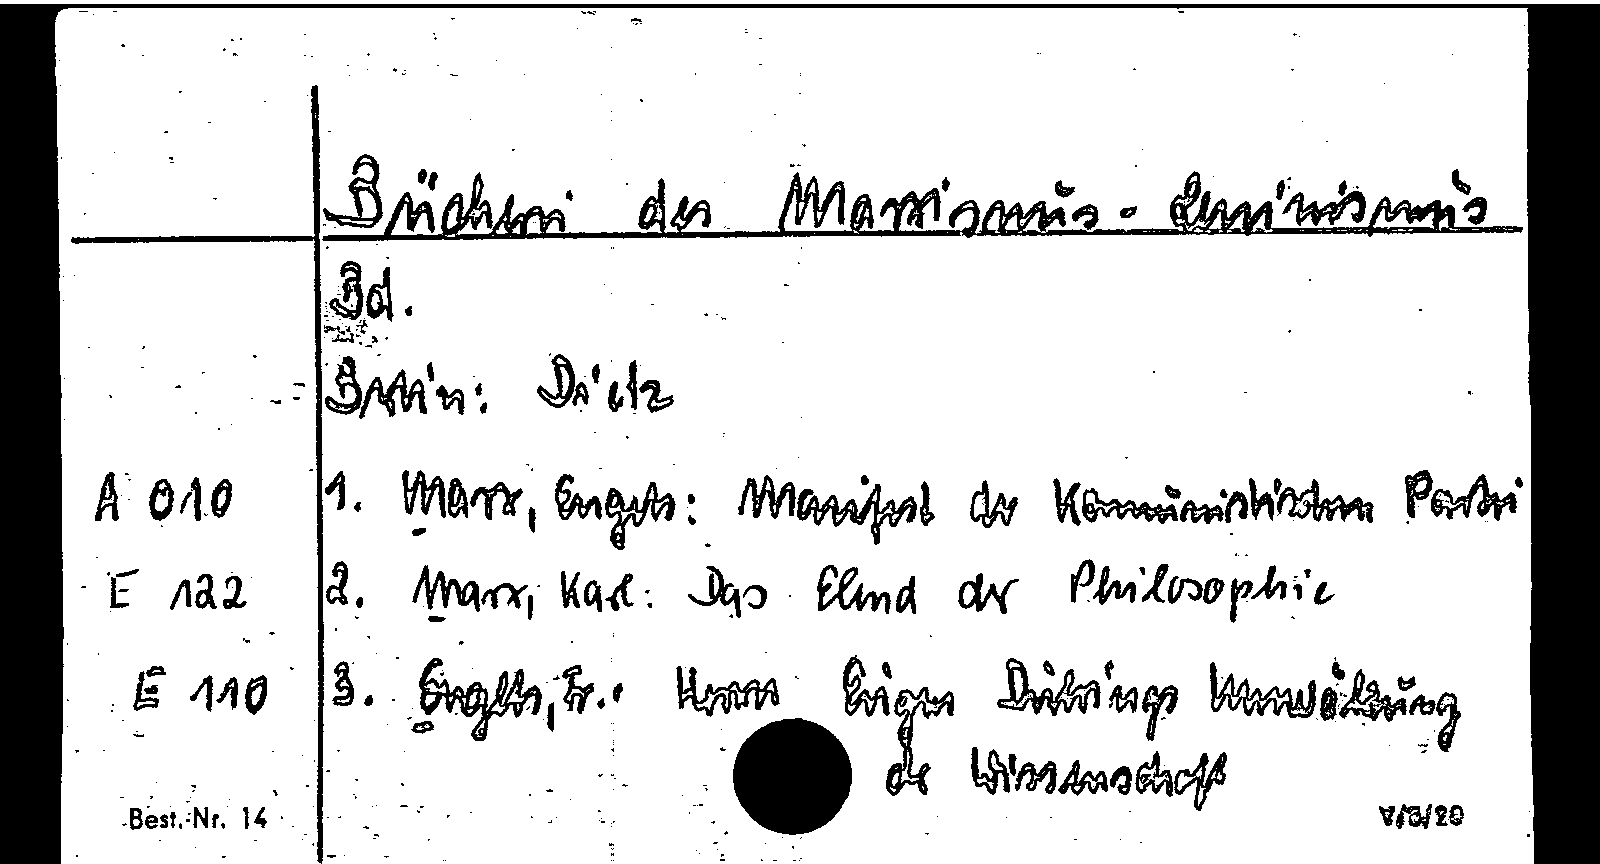 Bücherei des Marxismus-Leninismus
Bd.
Berlin: Dietz
A 010 1. Marx, Engels: Manifest der Kommunistischen Partei
E 122 2. Marx, Karl: Das Elend der Philosophie
E 110 3. Engels, Fr.: Herrn Eugen Dührings Umwälzung
der Wissenschaft
Best.-Nr. 14 V/3/20